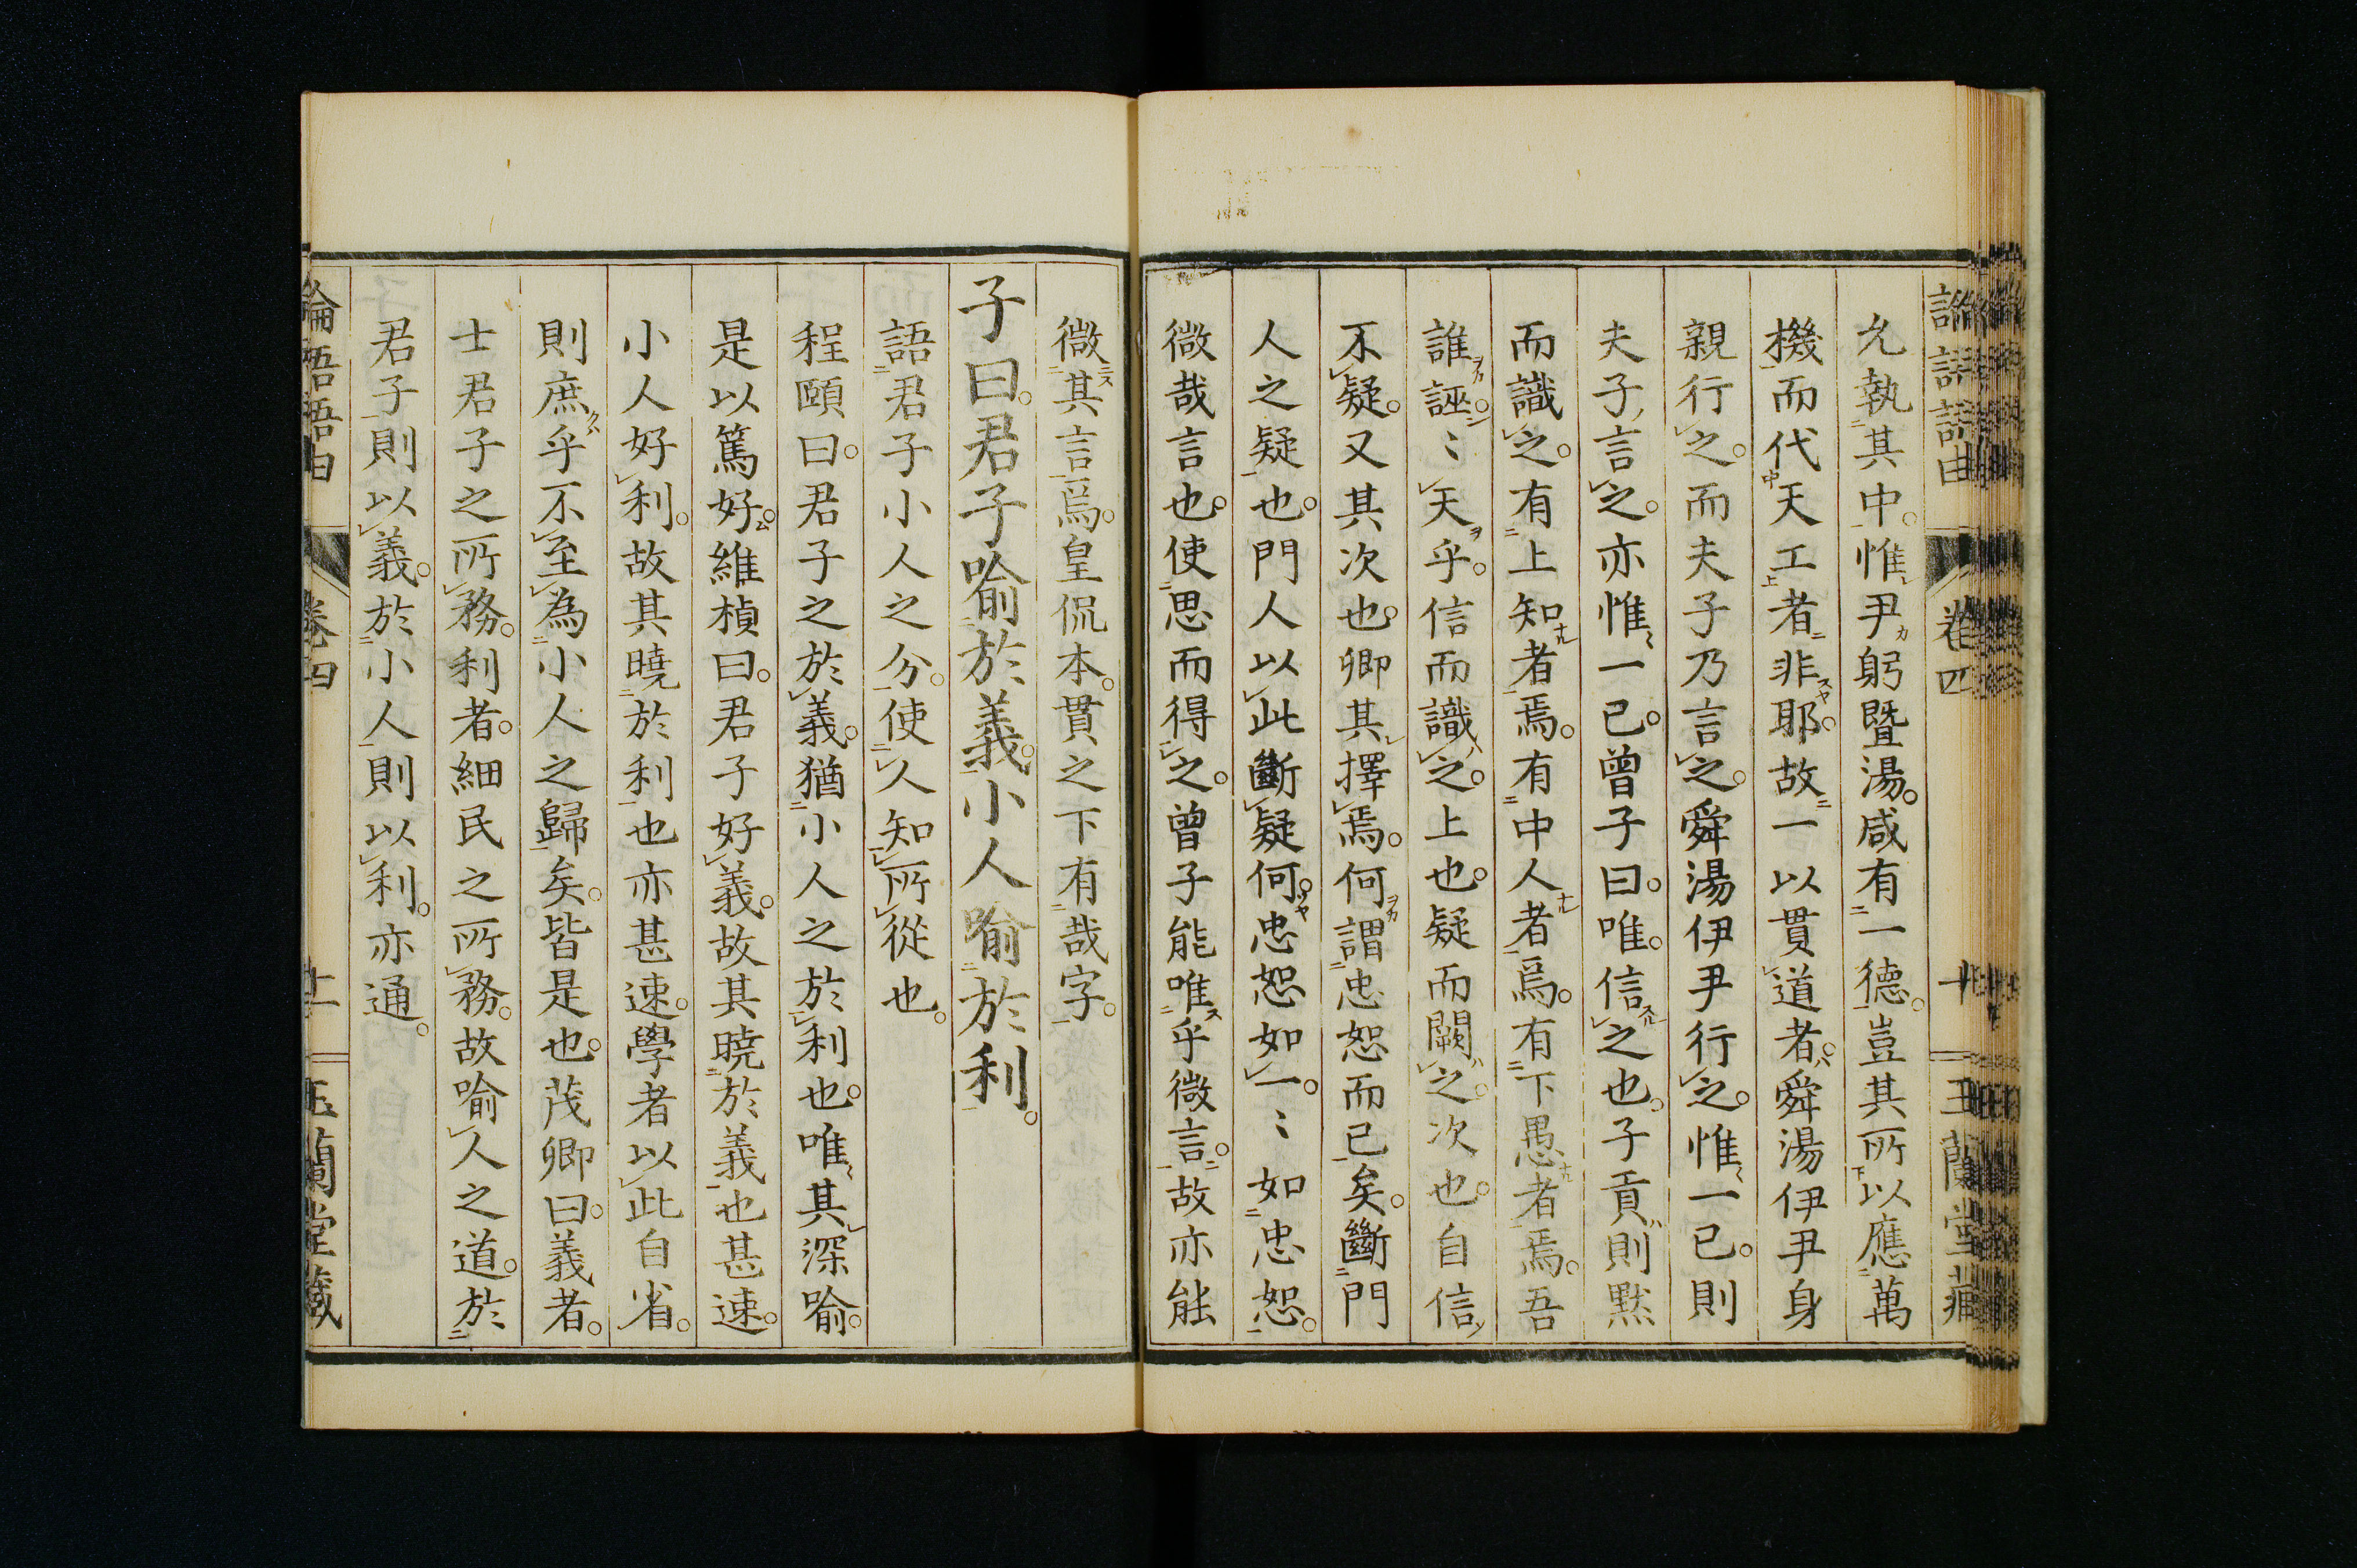 論語語由 卷四 十 玉蘭堂藏
允執其中。惟尹躬暨湯。咸有一德。豈其所以應萬
機而代天工者非耶。故一以貫道者。舜湯伊尹身
親行之。而夫子乃言之。舜湯伊尹行之。惟一已。則
夫子言之。亦惟一已。曾子曰。唯。信之也。子貢則黙
而識之。有上知者焉。有中人者焉。有下愚者焉。吾
誰誣。〻天乎。信而識之。上也。疑而闕之。次也。自信
不疑。又其次也。卿其擇焉。何謂忠恕而已矣。斷門
人之疑也。門人以此斷疑何。忠恕如一。〻如忠恕。
微哉言也。使思而得之。曾子能唯乎微言。故亦能
微其言焉。皇侃本。貫之下有哉字。
子曰。君子喻於義。小人喻於利。
語君子小人之分。使人知所從也。
程頤曰。君子之於義。猶小人之於利也。唯其深喻。
是以篤好。維楨曰。君子好義。故其曉於義也甚速。
小人好利。故其曉於利也亦甚速。學者以此自省。
則庶乎不至為小人之歸矣。皆是也。茂卿曰。義者。
士君子之所務。利者。細民之所務。故喻人之道。於
君子則以義。於小人則以利。亦通。
論語語由 卷四 十一 玉蘭堂藏